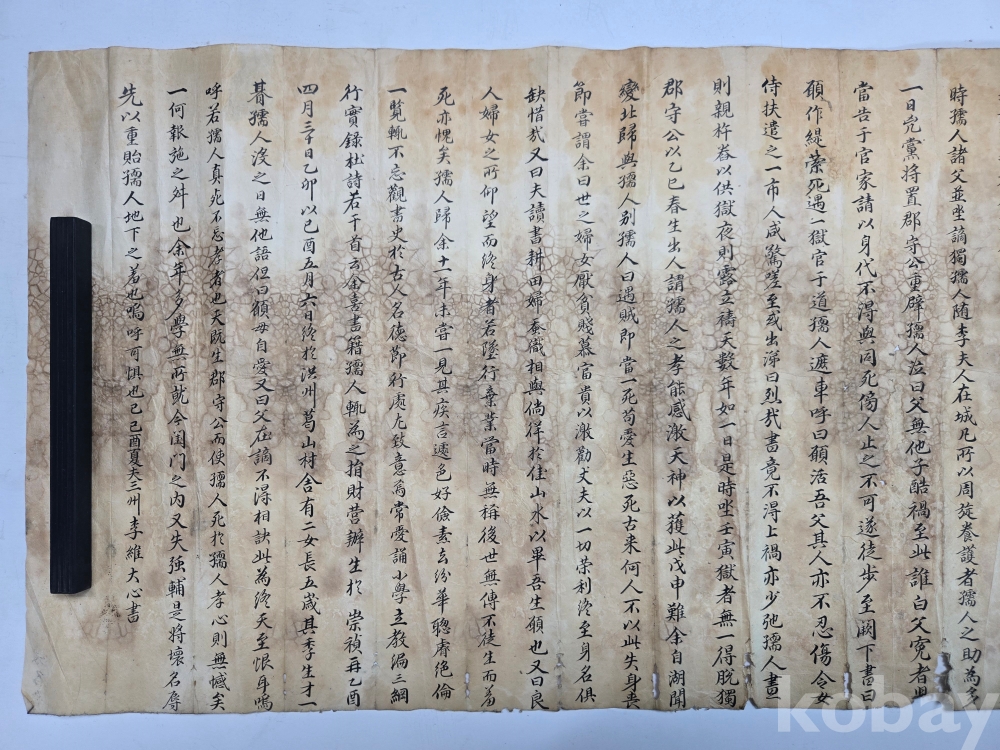 時孺人諸父並坐謫獨孺人随李夫人在城凡所以周旋養護者孺人之助為多
一日兇黨將置郡守公重辟孺人泣曰父無他子酷禍至此誰白父寃者
當告于官家請以身代不得與同死傍人止之不可遂徒步至闕下書曰
願作緹縈死遇一獄官于道孺人遮車呼曰願活吾父其人亦不忍傷令女
侍扶遣之一市人咸驚嗟至或出涕曰烈哉書竟不得上禍亦少弛孺人晝
則親杵舂以供獄夜則露立禱天數年如一日是時坐壬寅獄者無一得脫獨
郡守公以乙巳春生出人謂孺人之孝能感激天神以獲此戊申難余自湖聞
變北歸與孺人別孺人曰遇賊即當一死苟愛生惡死古来何人不以此失身喪
節嘗謂余曰世之婦女厭貧賤慕富貴以激勸丈夫以一切榮利終至身名俱
缺惜哉又曰夫讀書耕田婦蚕織相與倘徉於佳山水以畢吾生願也又曰良
人婦女之所仰望而終身者若墜行棄業當時無稱後世無傳不徒生而羞
死亦愧矣孺人歸余十一年未嘗一見其疾言遽色好儉素去紛華聰睿絕倫
一覽輒不忘觀書史於古人名德節行處尤致意焉常愛誦小學立教漏三綱
行實錄杜詩若干首云余喜書籍孺人輒為之捐財营辦生於 崇禎再乙酉
四月三十日乙卯以己酉五月六日終於洪州葛山村舍有二女長五歲其季生才一
朞孺人沒之日無他語但曰願母自愛又曰父在謫不得相訣此為終天至恨耳嗚
呼若孺人真死不忘孝者也天既生郡守公而使孺人死於孺人孝心則無憾矣
一何報施之舛也余年多學無所就今閨門之内又失強輔是將壞名辱
先以重貽孺人地下之羞也嗚呼可惧也已己酉夏夫三州李維大心書
kobay